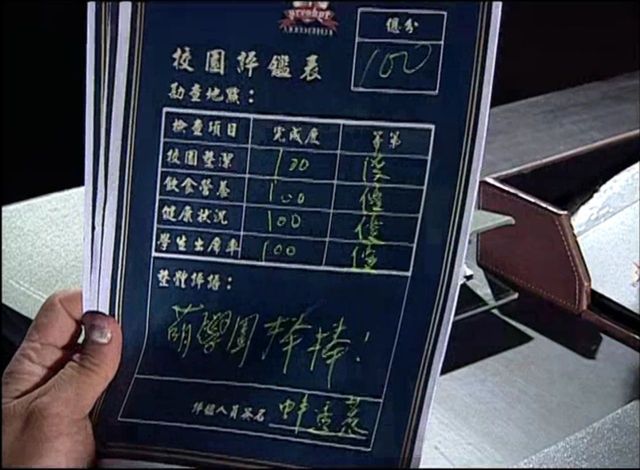 總分
100
校園評鑑表
勘查地點：
檢查項目 完成度 等第
校園整潔 100 優
飲食營養 100 優
健康狀況 100 優
學生出席率 100 優
整體評語：
萌學園棒棒！
評鑑人員簽名